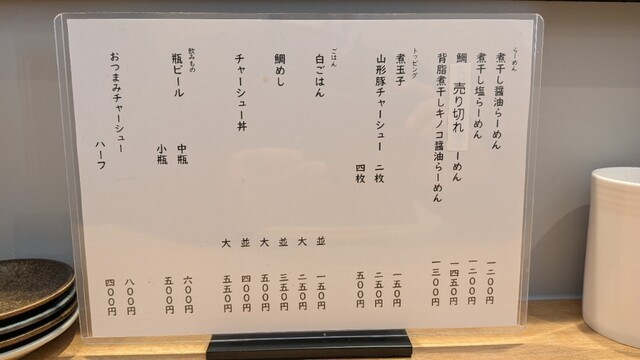 らーめん
煮干し醤油らーめん 一二〇〇円
煮干し塩らーめん 一二〇〇円
鯛 売り切れ ーめん 一四五〇円
背脂煮干しキノコ醤油らーめん 一三〇〇円
トッピング
煮玉子 一五〇円
山形豚チャーシュー 二枚 二五〇円
四枚 五〇〇円
ごはん
白ごはん 並 一五〇円
大 二五〇円
鯛めし 並 三五〇円
大 五〇〇円
チャーシュー丼 並 四〇〇円
大 五五〇円
飲みもの
瓶ビール 中瓶 六〇〇円
小瓶 五〇〇円
おつまみチャーシュー 八〇〇円
ハーフ 四〇〇円